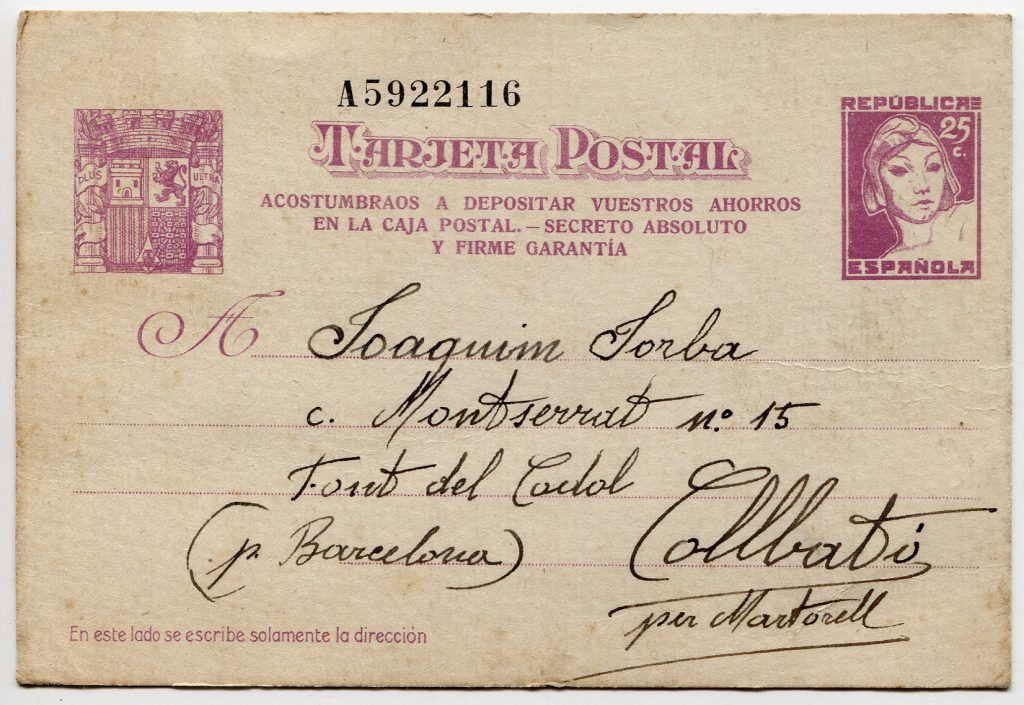 A5922116
TARJETA POSTAL
PLUS ULTRA
REPÚBLICA
25 c.
ACOSTUMBRAOS A DEPOSITAR VUESTROS AHORROS
EN LA CAJA POSTAL.—SECRETO ABSOLUTO
Y FIRME GARANTÍA
ESPAÑOLA
A Joaquim Jorba
c. Montserrat nº 15
Font del Codol
Collbató
(p. Barcelona)
per Martorell
En este lado se escribe solamente la dirección